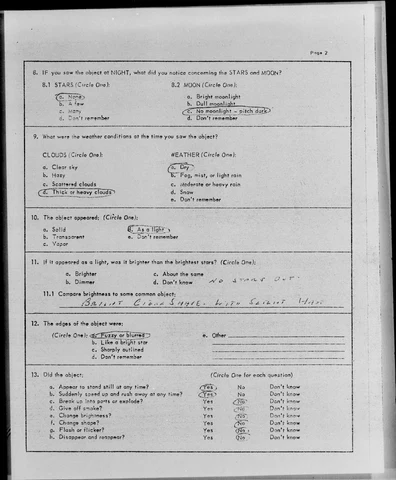 Page 2
8. IF you saw the object at NIGHT, what did you notice concerning the STARS and MOON?
8.1 STARS (Circle One): 8.2 MOON (Circle One):
a. None a. Bright moonlight
b. A few b. Dull moonlight
c. Many c. No moonlight - pitch dark
d. Don't remember d. Don't remember
9. What were the weather conditions at the time you saw the object?
CLOUDS (Circle One): WEATHER (Circle One):
a. Clear sky a. Dry
b. Hazy b. Fog, mist, or light rain
c. Scattered clouds c. Moderate or heavy rain
d. Thick or heavy clouds d. Snow
e. Don't remember
10. The object appeared: (Circle One):
a. Solid d. As a light
b. Transparent e. Don't remember
c. Vapor
11. If it appeared as a light, was it brighter than the brightest stars? (Circle One):
a. Brighter c. About the same
b. Dimmer d. Don't know NO STARS OUT
11.1 Compare brightness to some common object:
BRIGHT WITH
12. The edges of the object were:
(Circle One): a. Fuzzy or blurred e. Other
b. Like a bright star
c. Sharply outlined
d. Don't remember
13. Did the object: (Circle One for each question)
a. Appear to stand still at any time? Yes No Don't know
b. Suddenly speed up and rush away at any time? Yes No Don't know
c. Break up into parts or explode? Yes No Don't know
d. Give off smoke? Yes No Don't know
e. Change brightness? Yes No Don't know
f. Change shape? Yes No Don't know
g. Flash or flicker? Yes No Don't know
h. Disappear and reappear? Yes No Don't know